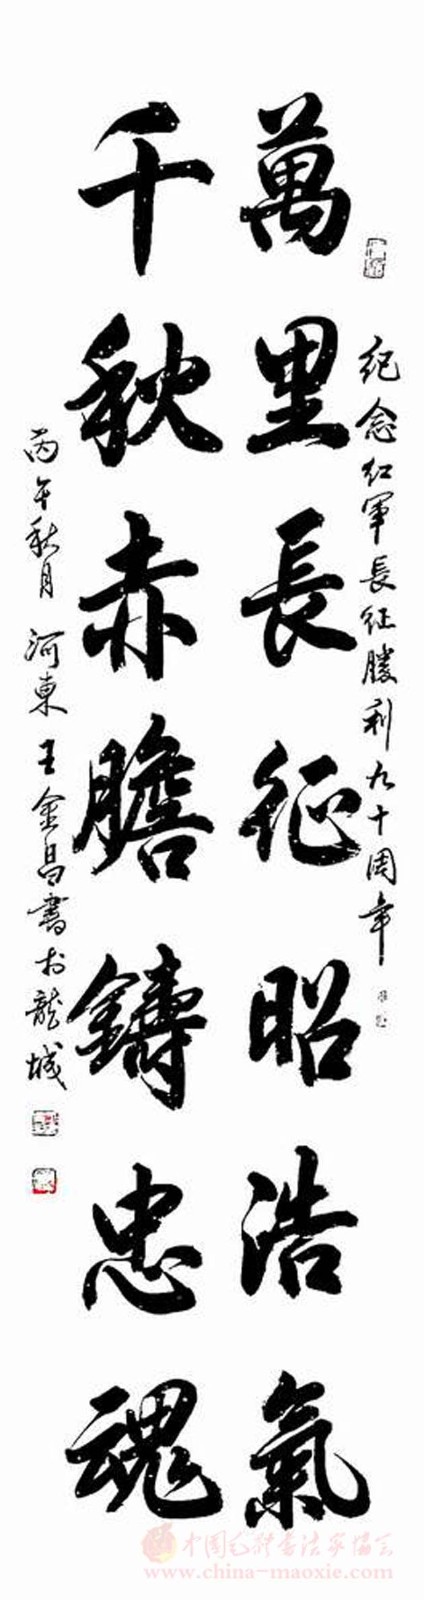 紀念红軍長征勝利九十周年
萬里長征昭浩氣
千秋赤膽鑄忠魂
丙午秋月河東王金昌書於龍城
中国毛体书法家协会
www.china-maoxie.com